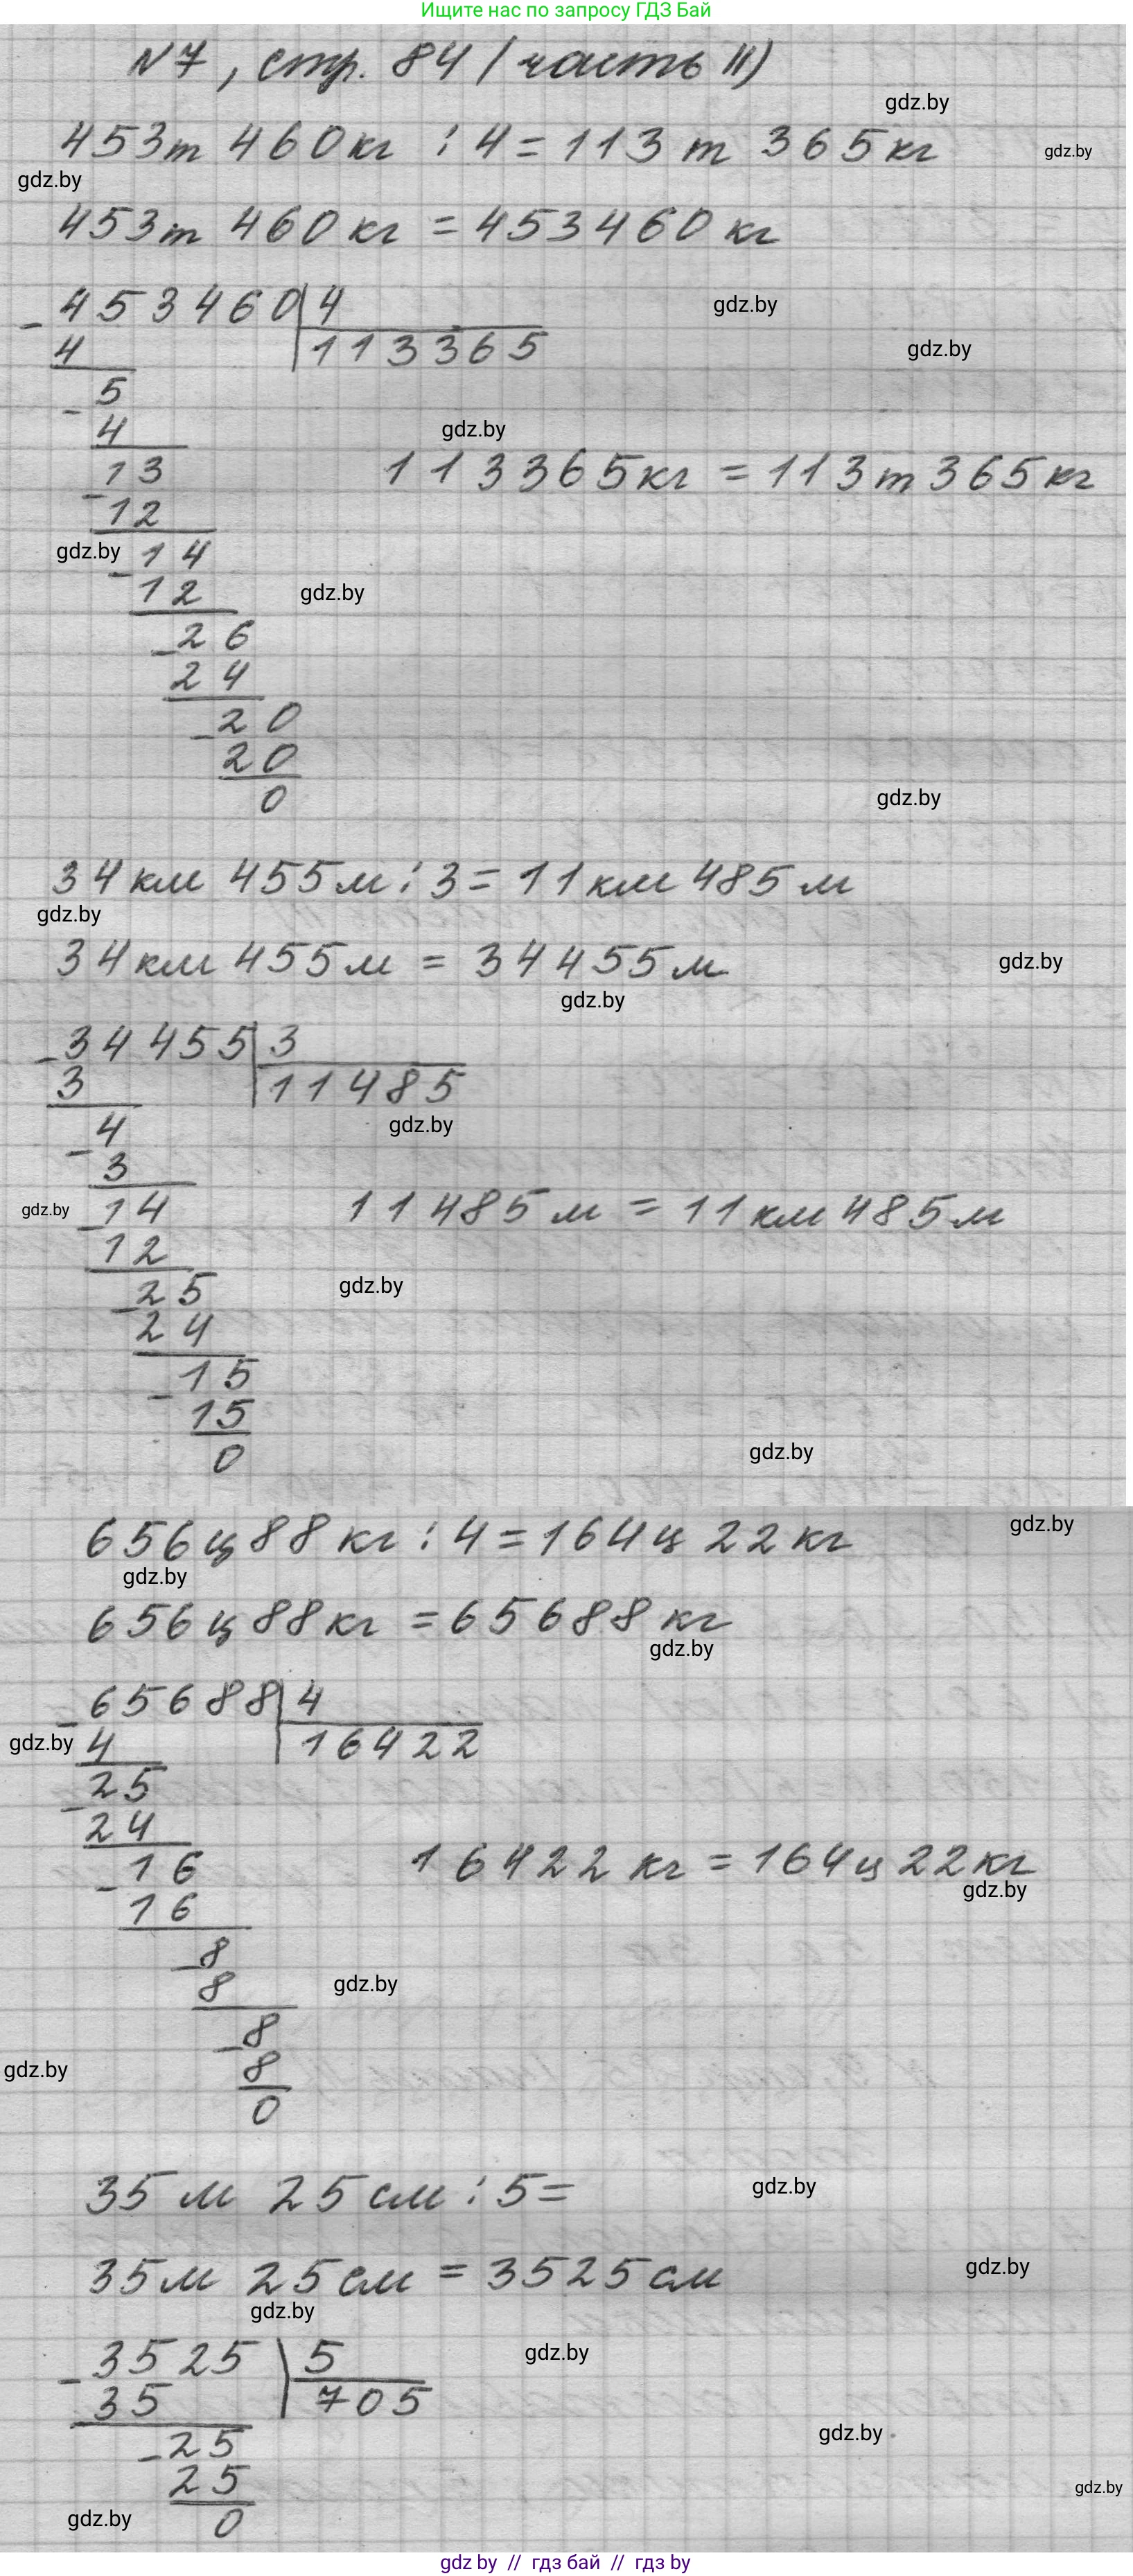 Ищите нас по запросу ГДЗ Бай
N7, стр. 84 (часть II)
gdz.by
453т 460кг : 4 = 113 т 365кг
gdz.by
gdz.by
453т 460 кг = 453460 кг
453460 4
gdz.by
4 113365
gdz.by
5
4
gdz.by
13
113365кг = 113т 365кг
12
gdz.by
14
12
gdz.by
26
24
20
20
0
gdz.by
34км 455м : 3 = 11км 485м
gdz.by
34км 455м = 34455м
gdz.by
gdz.by
34455 3
3 11485
4
gdz.by
3
gdz.by
14
11485м = 11км 485м
12
25
gdz.by
24
15
15
0
gdz.by
656ц 88кг : 4 = 164ц 22кг
gdz.by
gdz.by
656ц 88кг = 65688 кг
gdz.by
65688 4
gdz.by
4 16422
25
24
16
16422 кг = 164ц 22кг
gdz.by
16
8
8
gdz.by
8
8
gdz.by
0
35 м 25см : 5 =
gdz.by
35м 25см = 3525см
gdz.by
gdz.by
3525 5
gdz.by
35 705
25
gdz.by
25
gdz.by
0
gdz.by
gdz by // гдз бай // гдз by